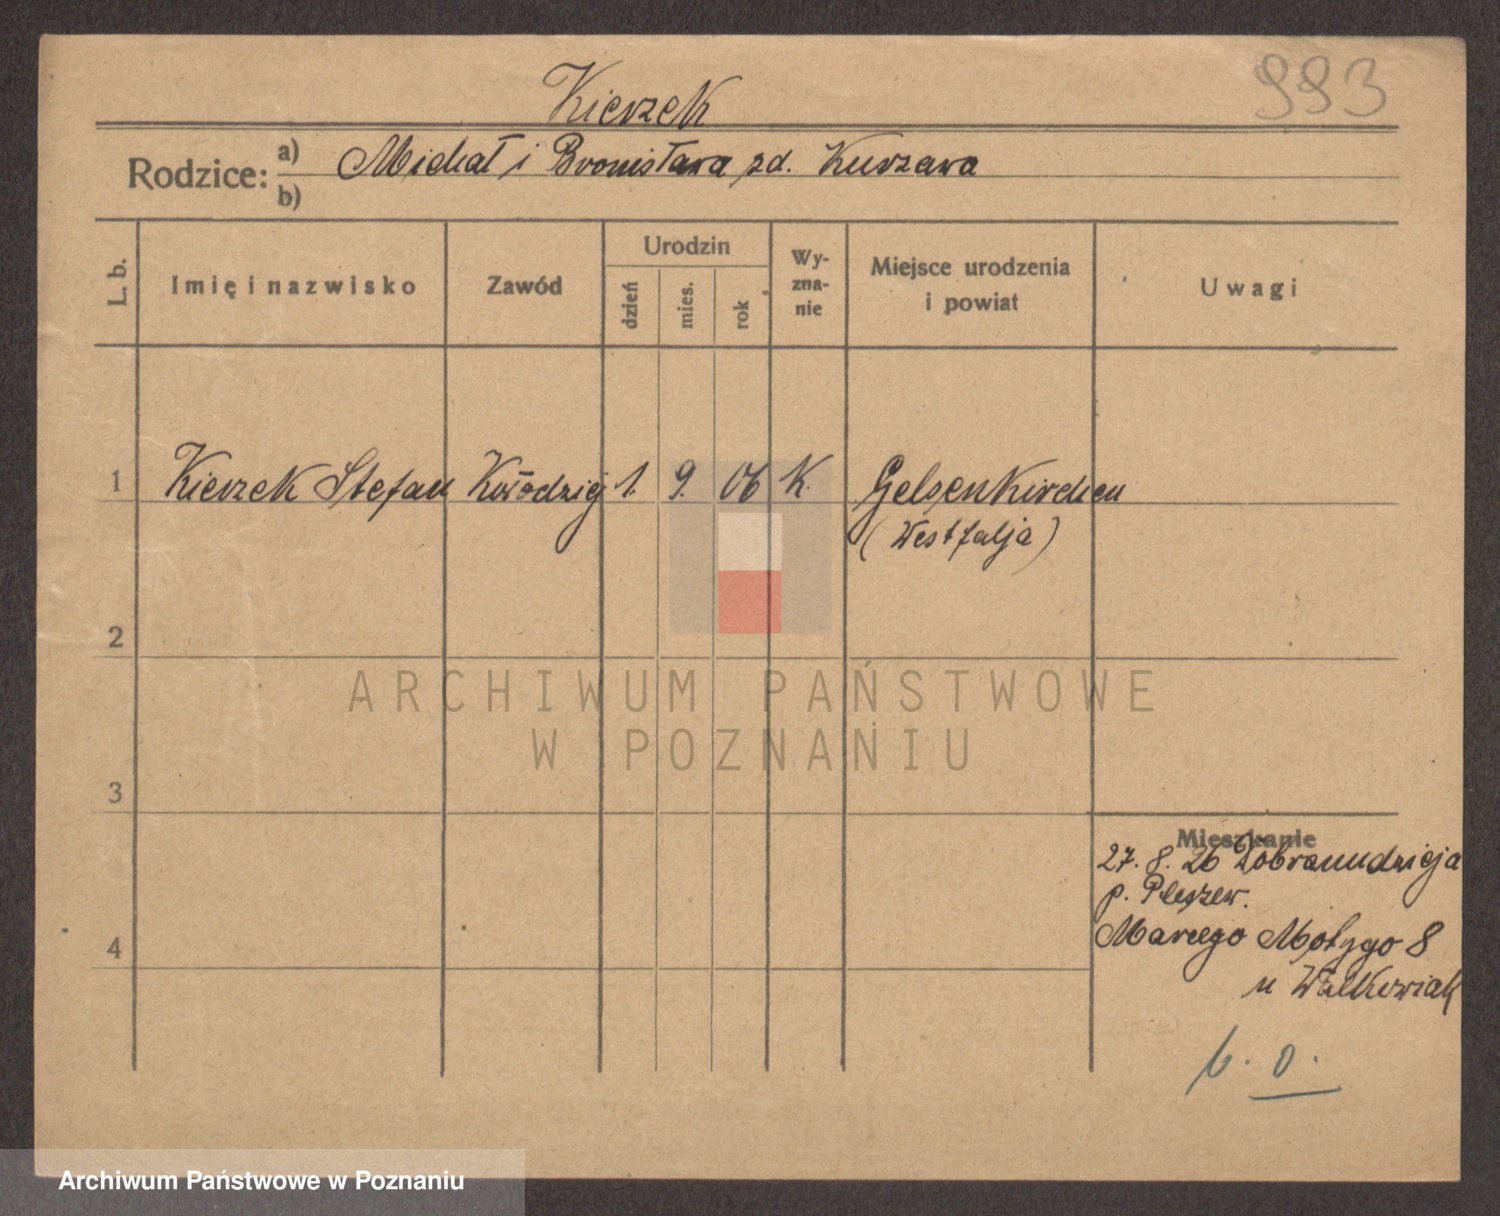 993
Kierzek
Rodzice: a) Michał i Bronisława zd. Kurzawa
b)
L. b.
Imię i nazwisko
Zawód
Urodzin
dzień
mies.
rok
Wy-
zna-
nie
Miejsce urodzenia
i powiat
Uwagi
1 Kierzek Stefan Kołodziej 1. 9. 06 K. Gelsenkirchen
(Westfalja)
2
3
4
Mieszkanie
27. 8. 26 Dobranadzieja
p. Pleszew.
Marcego Motygo 8
u Walkowiak
b. o.
ARCHIWUM PAŃSTWOWE
W POZNANIU
Archiwum Państwowe w Poznaniu